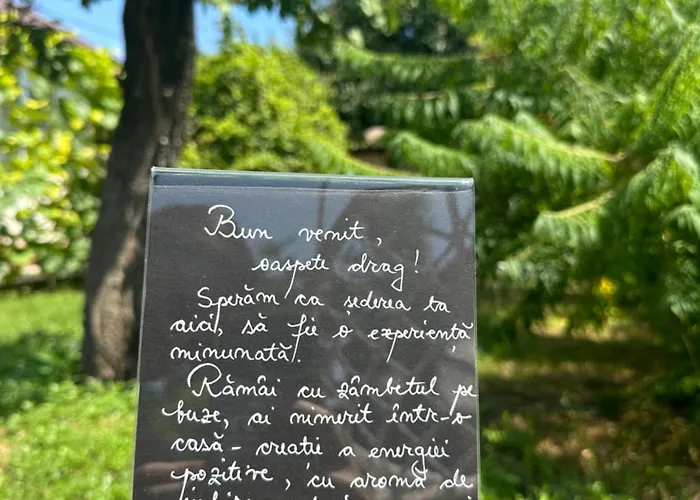 Bun venit,
oaspete drag!
Sperăm ca șederea ta
aici, să fie o experiență
minunată!
Rămâi cu zâmbetul pe
buze, ai nimerit într-o
casă - creatii a energiei
pozitive, cu aromă de